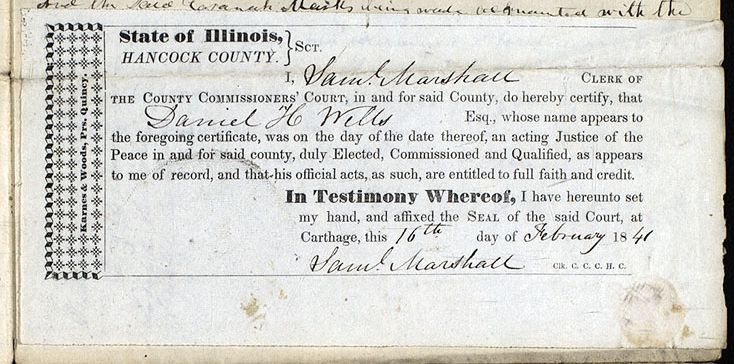 and the said Casanah Marks being made acquainted with the
State of Illinois,
HANCOCK COUNTY. } SCT.
Karnes & Woods, Prs. Quincy.
I, Saml. Marshall CLERK OF
THE COUNTY COMMISSIONERS' COURT, in and for said County, do hereby certify, that
Daniel H Wells Esq., whose name appears to
the foregoing certificate, was on the day of the date thereof, an acting Justice of the
Peace in and for said county, duly Elected, Commissioned and Qualified, as appears
to me of record, and that his official acts, as such, are entitled to full faith and credit.
In Testimony Whereof, I have hereunto set
my hand, and affixed the SEAL of the said Court, at
Carthage, this 16th day of February 1841
Saml. Marshall Clk. C. C. C. H. C.